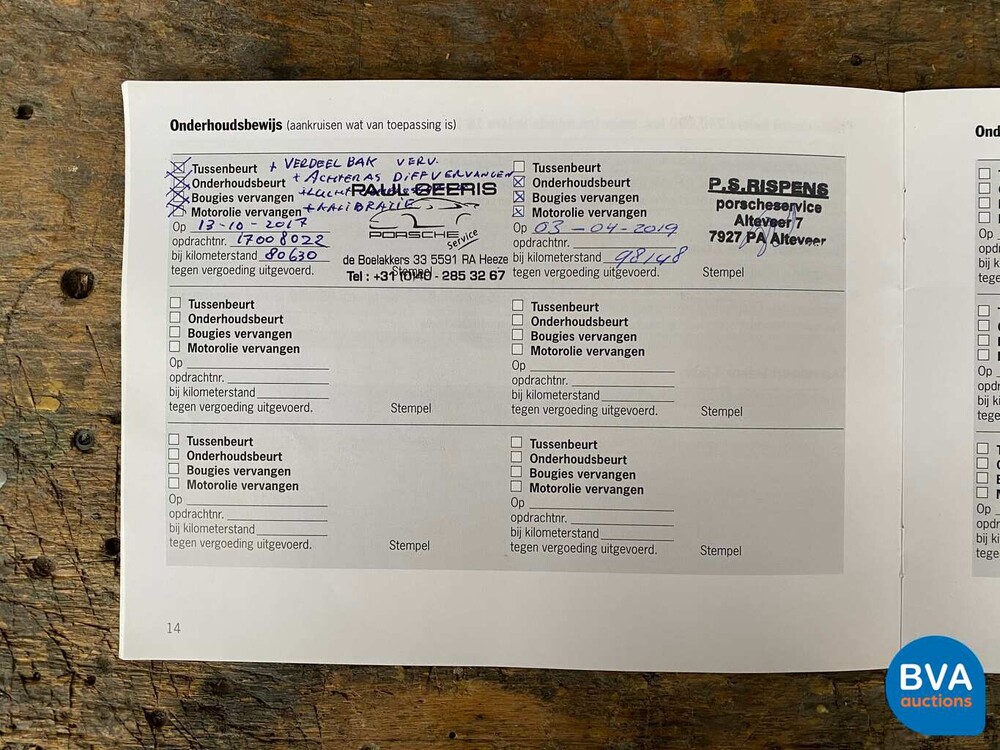 Onderhoudsbewijs (aankruisen wat van toepassing is)
Tussenbeurt + VERDEELBAK VERV.
Onderhoudsbeurt + ACHTERAS DIFF VERVANGEN
Bougies vervangen
Motorolie vervangen + KALIBRATIE
Op 13-10-2017
opdrachtnr. 17008022
bij kilometerstand 80630
tegen vergoeding uitgevoerd.
Stempel
PAUL GEERIS
PORSCHE service
de Boelakkers 33 5591 RA Heeze
Tel : +31 (0)40 - 285 32 67
Tussenbeurt
Onderhoudsbeurt
Bougies vervangen
Motorolie vervangen
Op 03-04-2019
opdrachtnr.
bij kilometerstand 98148
tegen vergoeding uitgevoerd.
Stempel
P.S.RISPENS
porscheservice
Alteveer 7
7927 PA Alteveer
Tussenbeurt
Onderhoudsbeurt
Bougies vervangen
Motorolie vervangen
Op
opdrachtnr.
bij kilometerstand
tegen vergoeding uitgevoerd.
Stempel
Tussenbeurt
Onderhoudsbeurt
Bougies vervangen
Motorolie vervangen
Op
opdrachtnr.
bij kilometerstand
tegen vergoeding uitgevoerd.
Stempel
Tussenbeurt
Onderhoudsbeurt
Bougies vervangen
Motorolie vervangen
Op
opdrachtnr.
bij kilometerstand
tegen vergoeding uitgevoerd.
Stempel
Tussenbeurt
Onderhoudsbeurt
Bougies vervangen
Motorolie vervangen
Op
opdrachtnr.
bij kilometerstand
tegen vergoeding uitgevoerd.
Stempel
14
Ond
Op
opdr
bij k
tege
Op
opdr
bij ki
tege
Op
opdr
bij ki
tege
BVA
auctions